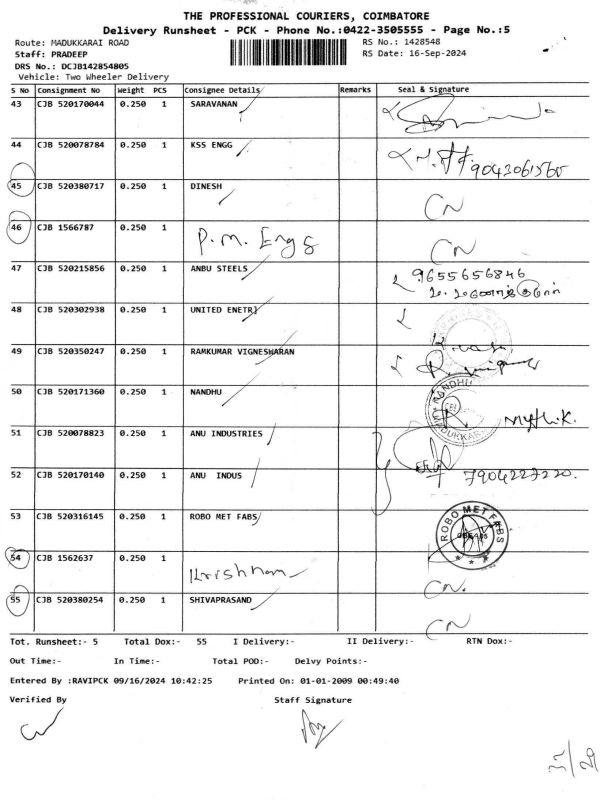 THE PROFESSIONAL COURIERS, COIMBATORE
Delivery Runsheet - PCK - Phone No.:0422-3505555 - Page No.:5
Route: MADUKKARAI ROAD RS No.: 1428548
Staff: PRADEEP RS Date: 16-Sep-2024
DRS No.: DCJB142854805
Vehicle: Two Wheeler Delivery
S No Consignment No Weight PCS Consignee Details Remarks Seal & Signature
43 CJB 520170044 0.250 1 SARAVANAN
44 CJB 520078784 0.250 1 KSS ENGG 9043061560
45 CJB 520380717 0.250 1 DINESH CN
46 CJB 1566787 0.250 1 P.M. Engg CN
47 CJB 520215856 0.250 1 ANBU STEELS 9655656846
48 CJB 520302938 0.250 1 UNITED ENETRI
49 CJB 520350247 0.250 1 RAMKUMAR VIGNESWARAN
50 CJB 520171360 0.250 1 NANDHU NANDHU
51 CJB 520078823 0.250 1 ANU INDUSTRIES
52 CJB 520170140 0.250 1 ANU INDUS 7904227220.
53 CJB 520316145 0.250 1 ROBO MET FABS ROBO MET FABS
54 CJB 1562637 0.250 1 Krishnan CN.
55 CJB 520380254 0.250 1 SHIVAPRASAND CN
Tot. Runsheet:- 5 Total Dox:- 55 I Delivery:- II Delivery:- RTN Dox:-
Out Time:- In Time:- Total POD:- Delvy Points:-
Entered By :RAVIPCK 09/16/2024 10:42:25 Printed On: 01-01-2009 00:49:40
Verified By Staff Signature